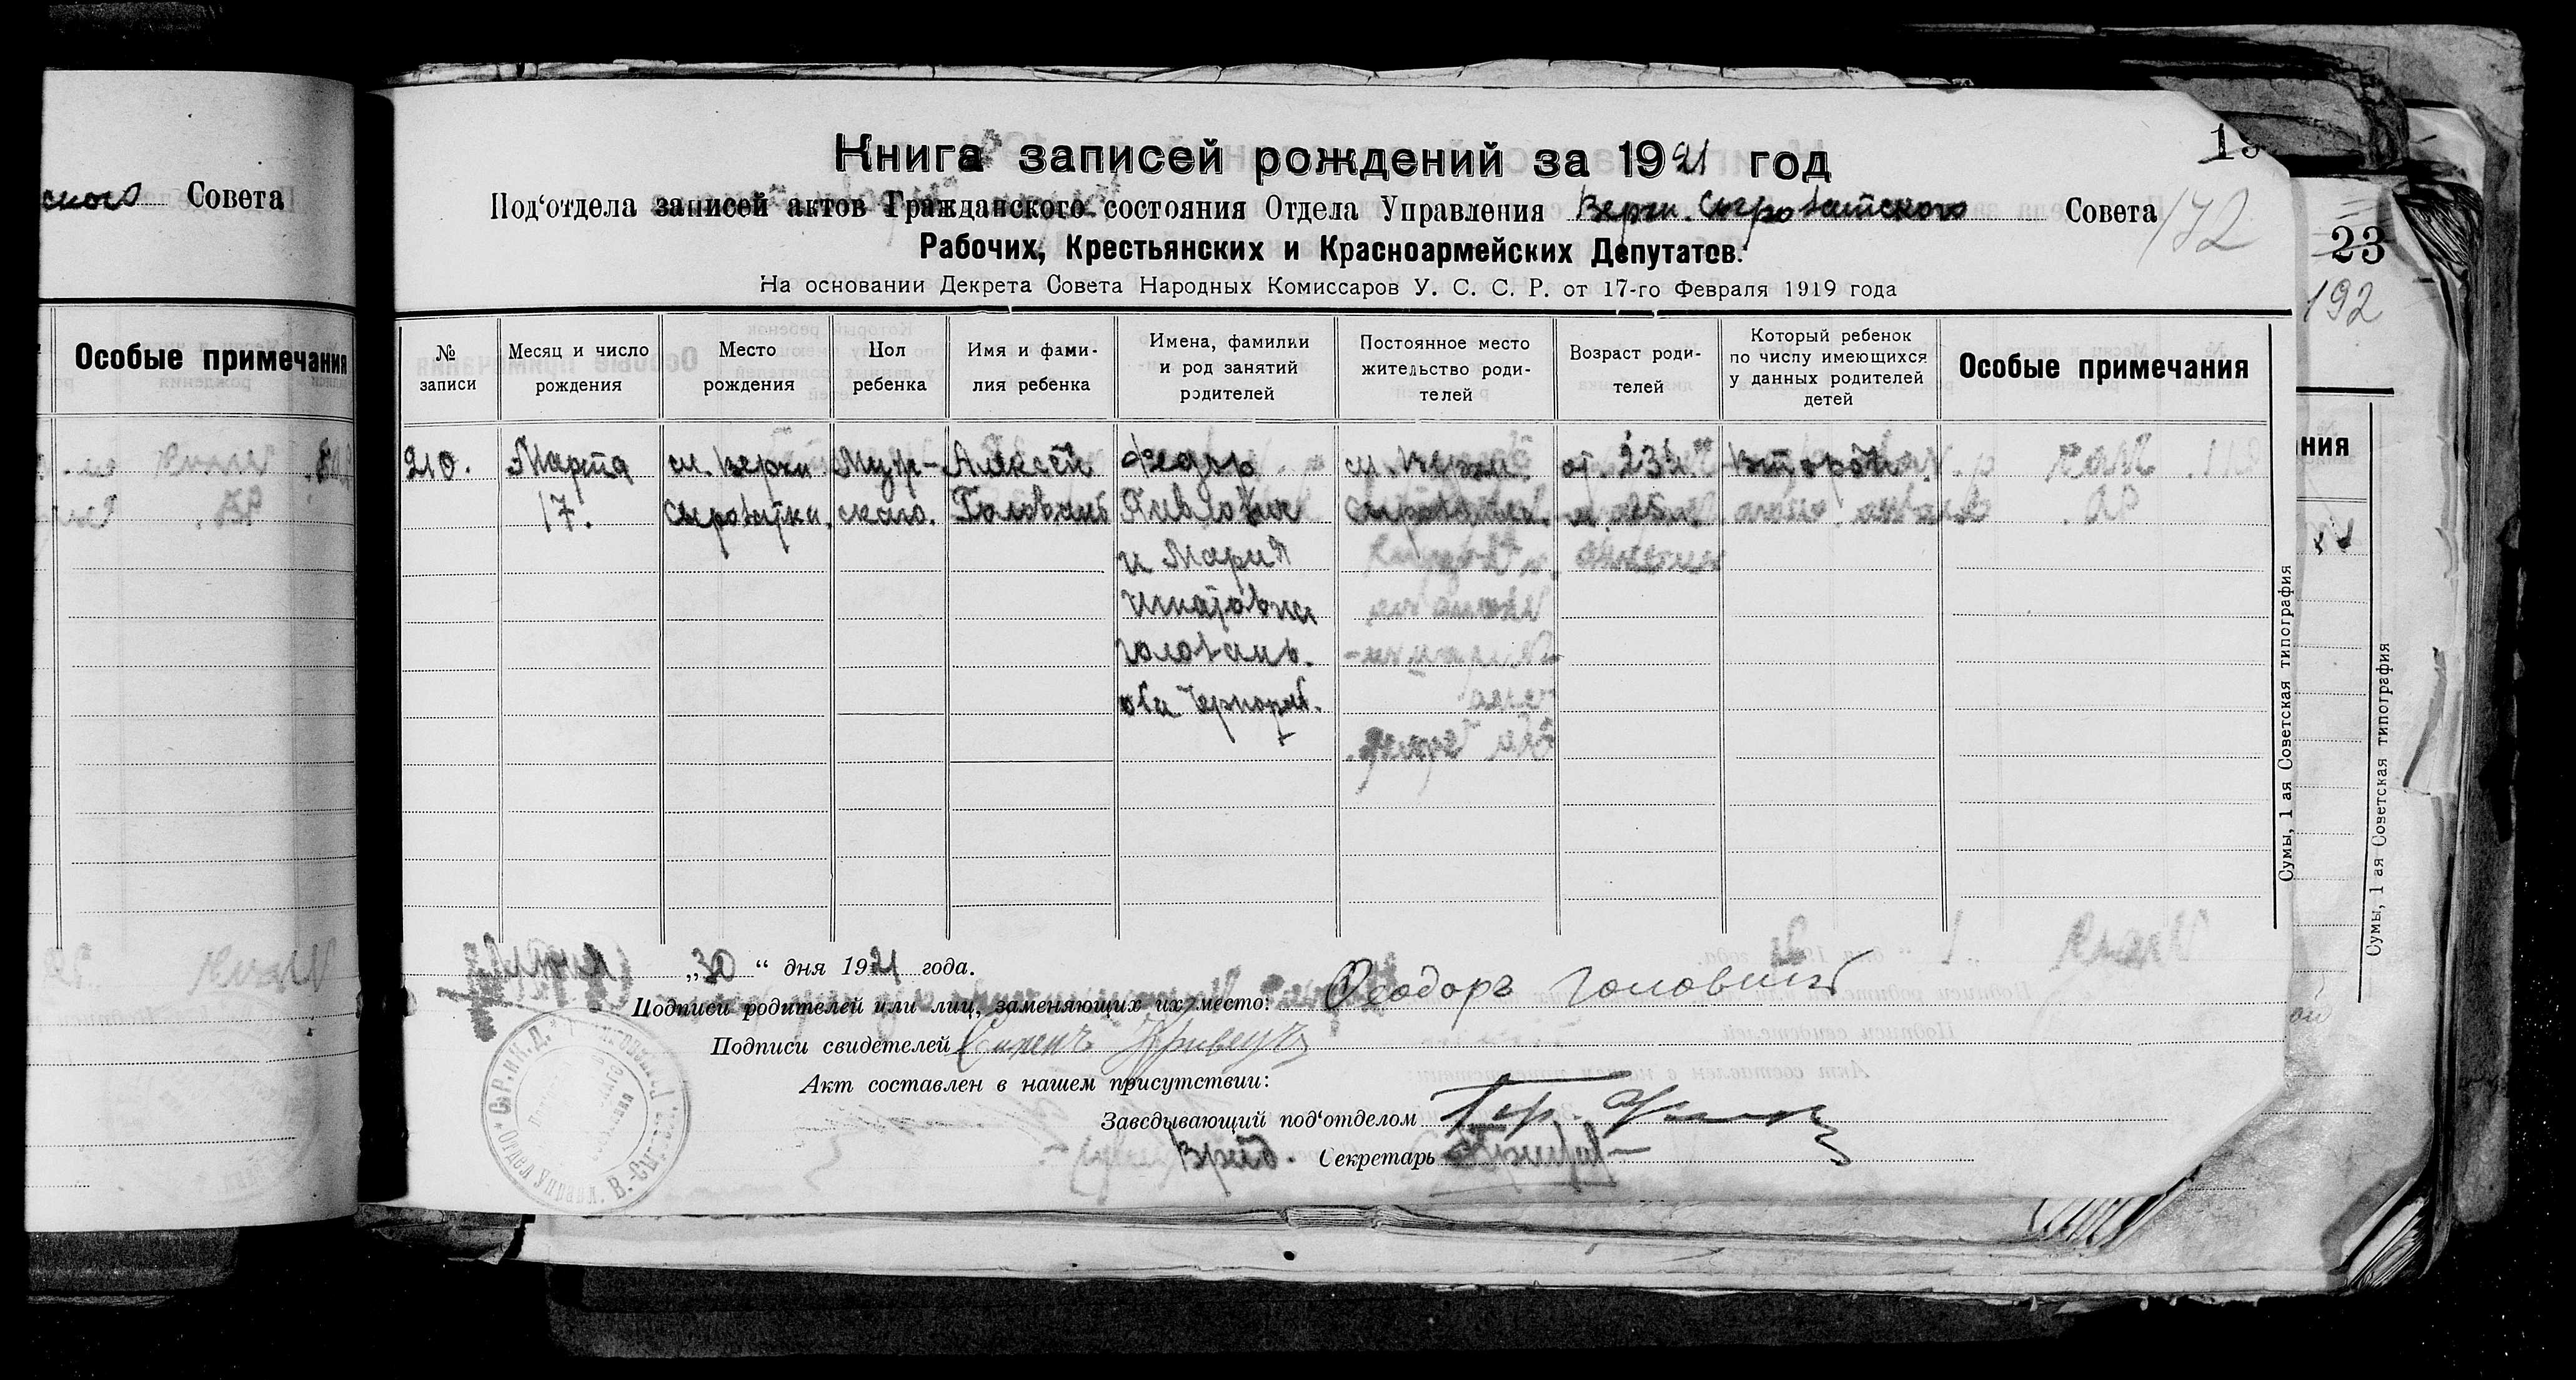 ского Совета
Особые примечания
Книга записей рождений за 1921 год
Под'отдела записей актов Гражданского состояния Отдела Управления Верхн. Сыроватского Совета
Рабочих, Крестьянских и Красноармейских Депутатов.
На основании Декрета Совета Народных Комиссаров У. С. С. Р. от 17-го Февраля 1919 года
172
23
192
№ записи
Месяц и число рождения
Место рождения
Пол ребенка
Имя и фами-
лия ребенка
Имена, фамилии
и род занятий
родителей
Постоянное место
жительство роди-
телей
Возраст роди-
телей
Который ребенок
по числу имеющихся
у данных родителей
детей
Особые примечания
ния
210.
Марта
17.
сл. Верхн
Сыроватка.
Муж-
ского.
Алексей
Головань
Федор
Павлович
и Мария
Игнатовна
Головань.
оба Чернораб.
сл. Верхн.
Сыроватка.
от. 23
м.
Второй
„30“ дня 1921 года.
Подписи родителей или лиц, заменяющих их место: Феодоръ Головань
Подписи свидетелей
Акт составлен в нашем присутствии:
Заведывающий под'отделом
Врид. Секретарь
Отдел Управл. В.-Сы
Сумы, 1 ая Советская типография
Сумы, 1 ая Советская типография